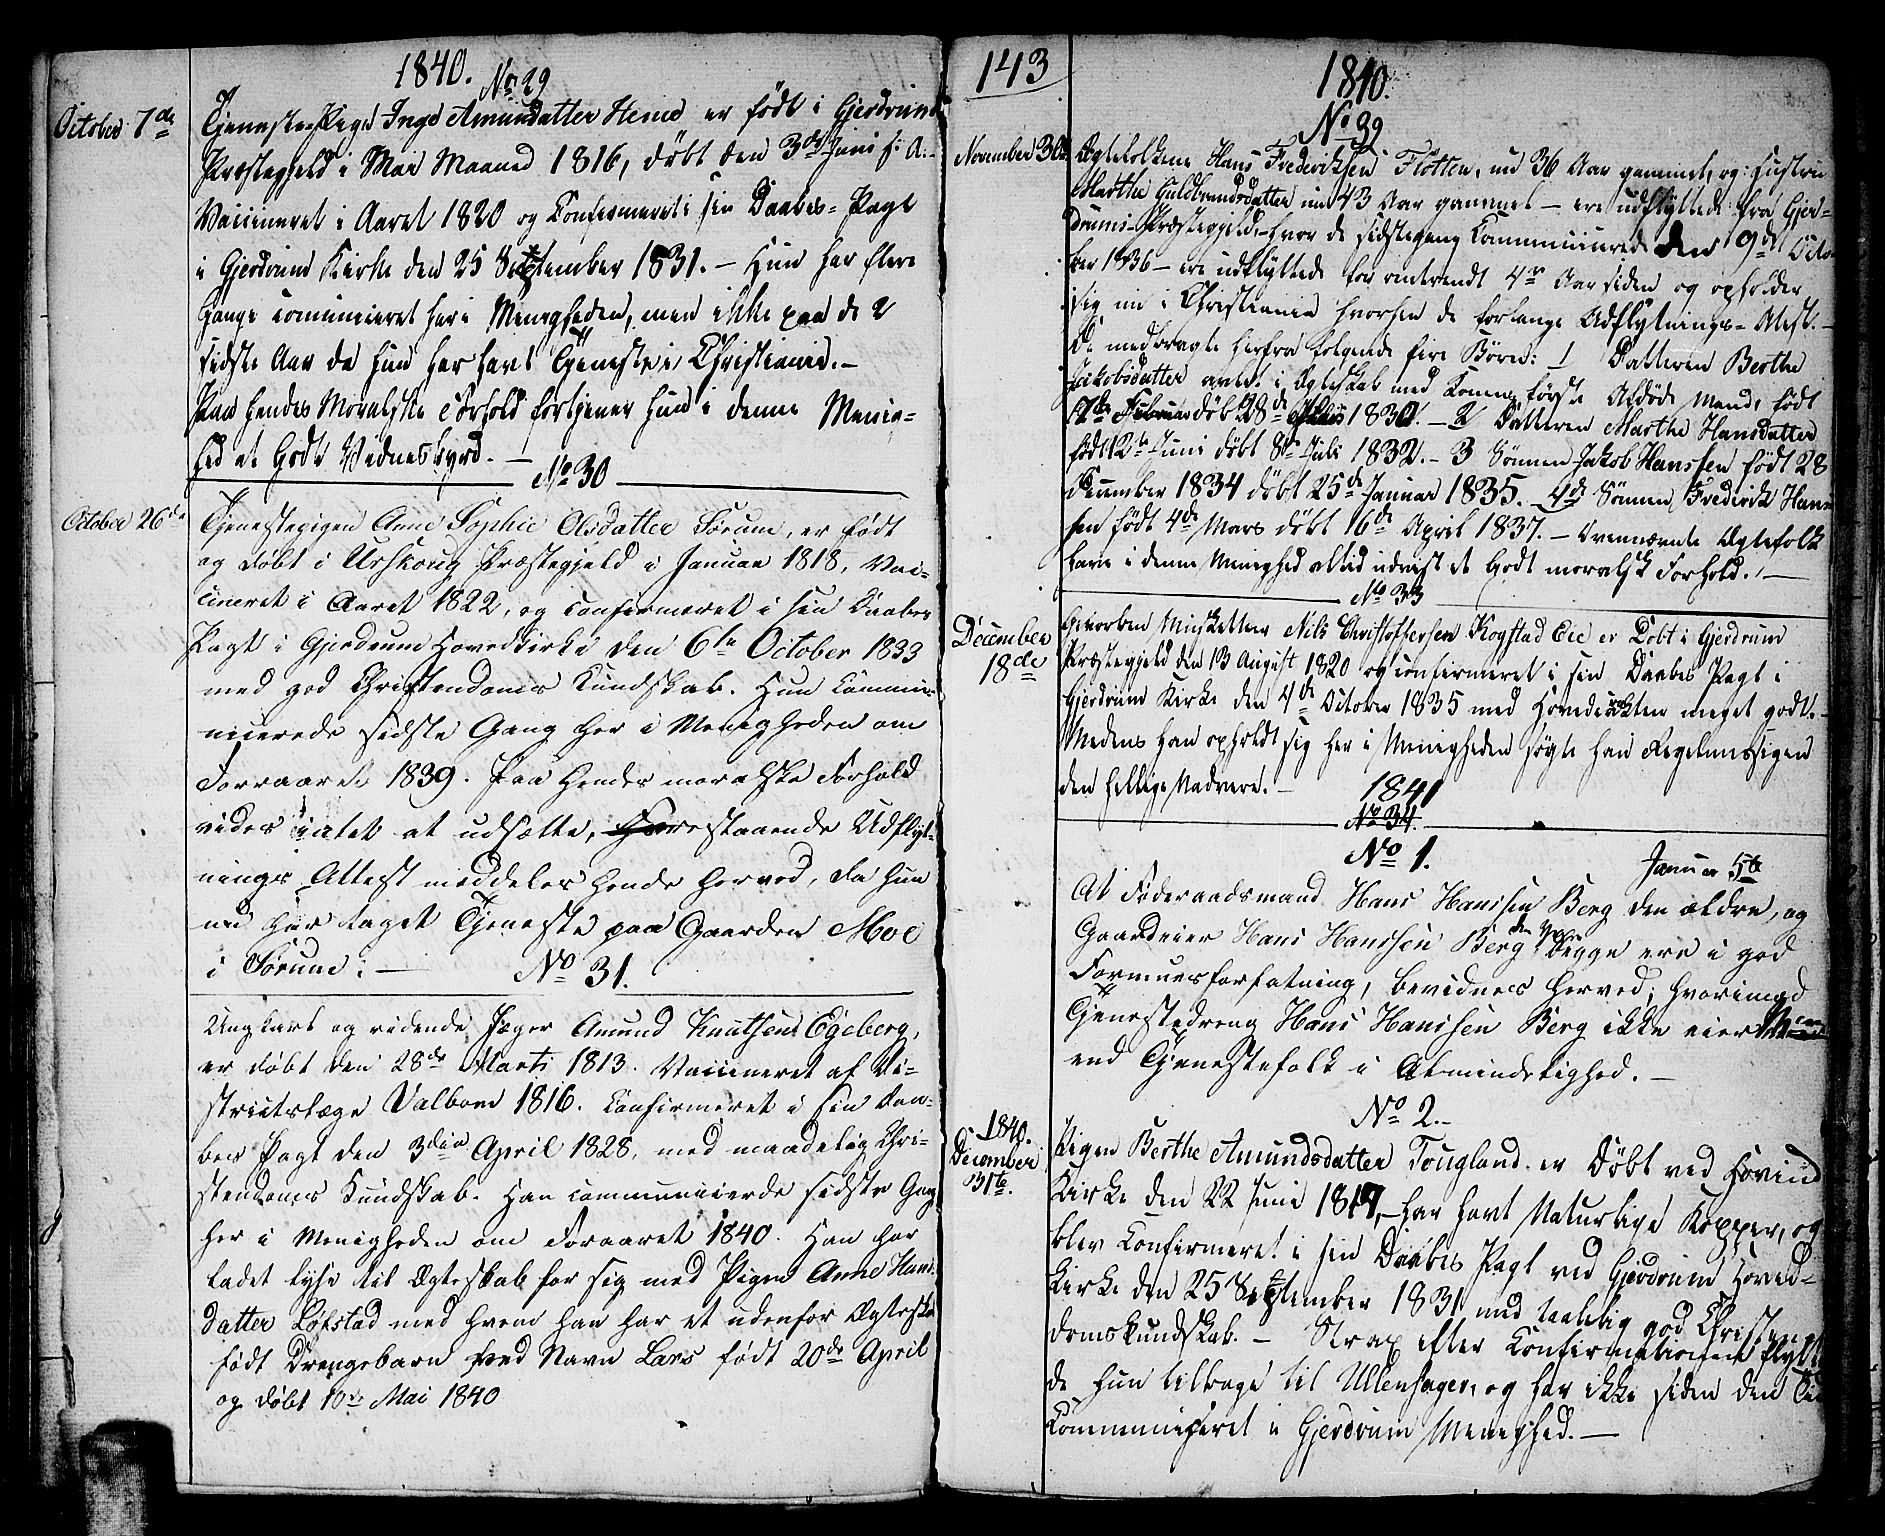 1840.
No 29
October 7de
Tjeneste-Pige Inge Amundatter Heine er født i Gjerdrums
Præstegjeld i Mai Maaned 1816, døbt den 3de Juni s: A:
Vaccineret i Aaret 1820 og Confirmeret i sin Daabes-Pagt
i Gjerdrum Kirke den 25 September 1831. – Hun har flere
Gange communiceret her i Menigheden, men ikke paa de 2
sidste Aar da hun har havt Tjeneste i Christiania. –
Paa hendes Moralske Forhold fortjener hun i denne Menig-
hed et Godt Vidnesbyrd. –
No 30
October 26de
Tjenestepigen Anne Sophie Olsdatter Sørum, er født
og døbt i Urskoug Præstegjeld i Januar 1818, Vac-
cineret i Aaret 1822, og confirmeret i sin Daabes
Pagt i Gjerdrum Hovedkirke den 6te October 1833
med god Christendoms Kundskab. Hun commu-
nicerede sidste Gang her i Menigheden om
Foraaret 1839. Paa hendes moralske Forhold
vides intet at udsætte, Forestaaende Udflyt-
nings Attest meddeles hende herved, da hun
nu har taget Tjeneste paa Gaarden Moe
i Sørum: –
No 31.
Ungkarl og ridende Jæger Amund Knutsen Egeberg,
er døbt den 28de Marts 1813. Vaccineret af Di-
strictslæge Dalbom 1816. Confirmeret i sin Daa-
bes Pagt den 3die April 1828, med maadelig Chri-
stendoms Kundskab. Han communicerde sidste Gag
her i Menigheden om Foraaret 1840. Han har
ladet lyse til Ægteskab for sig med Pigen Anne Hans
datter Løkstad med hvem han har et udenfor Ægteskab
født Drengebarn ved Navn Lars født 20de April
og døbt 10de Mai 1840
143
1840.
No 32
November 30te
Ægtefolkene Hans Fredericksen Flotten, nu 36 Aar gammel, og Hustru
Marthe Guldbrandsdatter nu 43 Aar gammel – ere udflyttede fra Gjer-
drums-Præstegjeld, – hvor de sidstegang Communicerede den 9de Octo-
ber 1836 – ere udflyttede for omtrendt 4re Aar siden og opholder
sig nu i Christiania hvorhen de forlange Udflytnings-Attest. –
De medbragte herfra følgende fire Børn: 1 Datteren Berthe
Jakobsdatter avlet i Ægteskab med Konens første Afdøde Mand, født
17de Februar døbt 28de 1830. – 2 Datteren Marthe Hansdatter
født 12te Juni døbt 8de Juli 1832. – 3 Sønnen Jakob Hanssen født 28
December 1834 døbt 25de Januar 1835. – 4de Sønnen Fredirik Hans
sen født 4de Mars døbt 16de April 1837. – Ovennævnte Ægtefolk
have i denne Menighed altid udvist et Godt moralsk Forhold. –
No 33
December
18de
Gevorben Musketteer Nils Christoffersen Kogstad Eie er Døbt i Gjerdrum
Præstegjeld den 13 August 1820 og confirmeret i sin Daabes Pagt i
Gjerdrum Kirke den 4de October 1835 med Hovedcarakteer meget godt. –
Medens han opholdt sig her i Menigheden søgte han Regelmessigen
den hellige Nadvere. –
1841
No 34.
No 1.
Januar 5te
At Føderaadsmand Hans Hanssen Berg den ældre, og
Gaardeier Hans Hanssen Berg den Yngre begge ere i god
Formuesforfatning, bevidnes herved; hvorimod
Tjenestedreng Hans Hanssen Berg ikke eier Meer
end Tjenestefolk i Almindelighed. –
No 2. –
1840.
December
31te.
Pigen Berthe Amundsdatter Tougland er Døbt ved Hovind
Kirke den 22 Juni 1817, – har havt Naturlige Kopper, og
blev Confirmeret i sin Daabes Pagt ved Gjerdrum Hoved-
kirke den 25 September 1831 med taalelig god Christen-
domskundskab. – Strax efter Confirmationen flytt
de hun tilbage til Ullensager, og har ikke siden den Tid
Communiceret i Gjerdrum Menighed. –